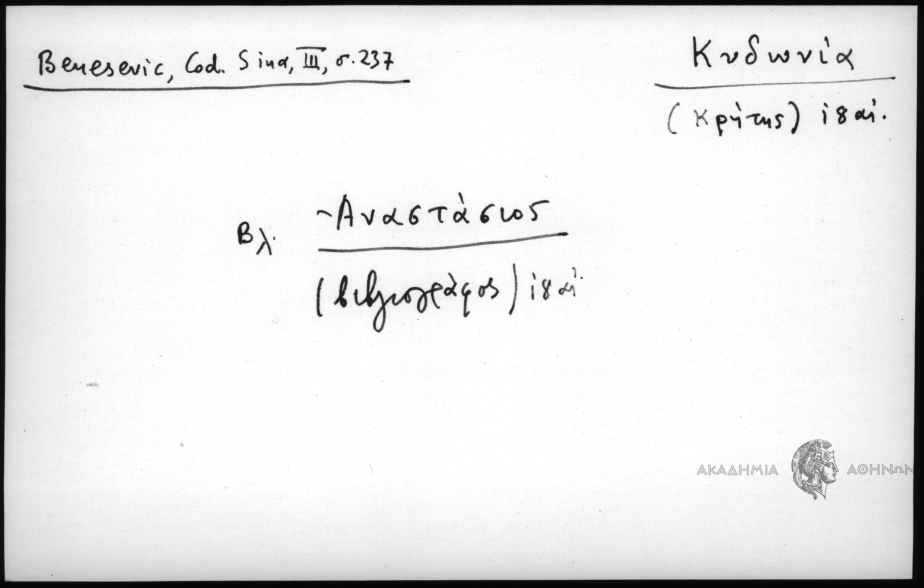 Benesevic, Cod. Sina, III, σ. 237
Κυδωνία
(Κρήτης) ιϛ αἰ.
Βλ.
Ἀναστάσιος
(βιβλιογράφος) ιϛ αἰ.
ΑΚΑΔΗΜΙΑ ΑΘΗΝΩΝ